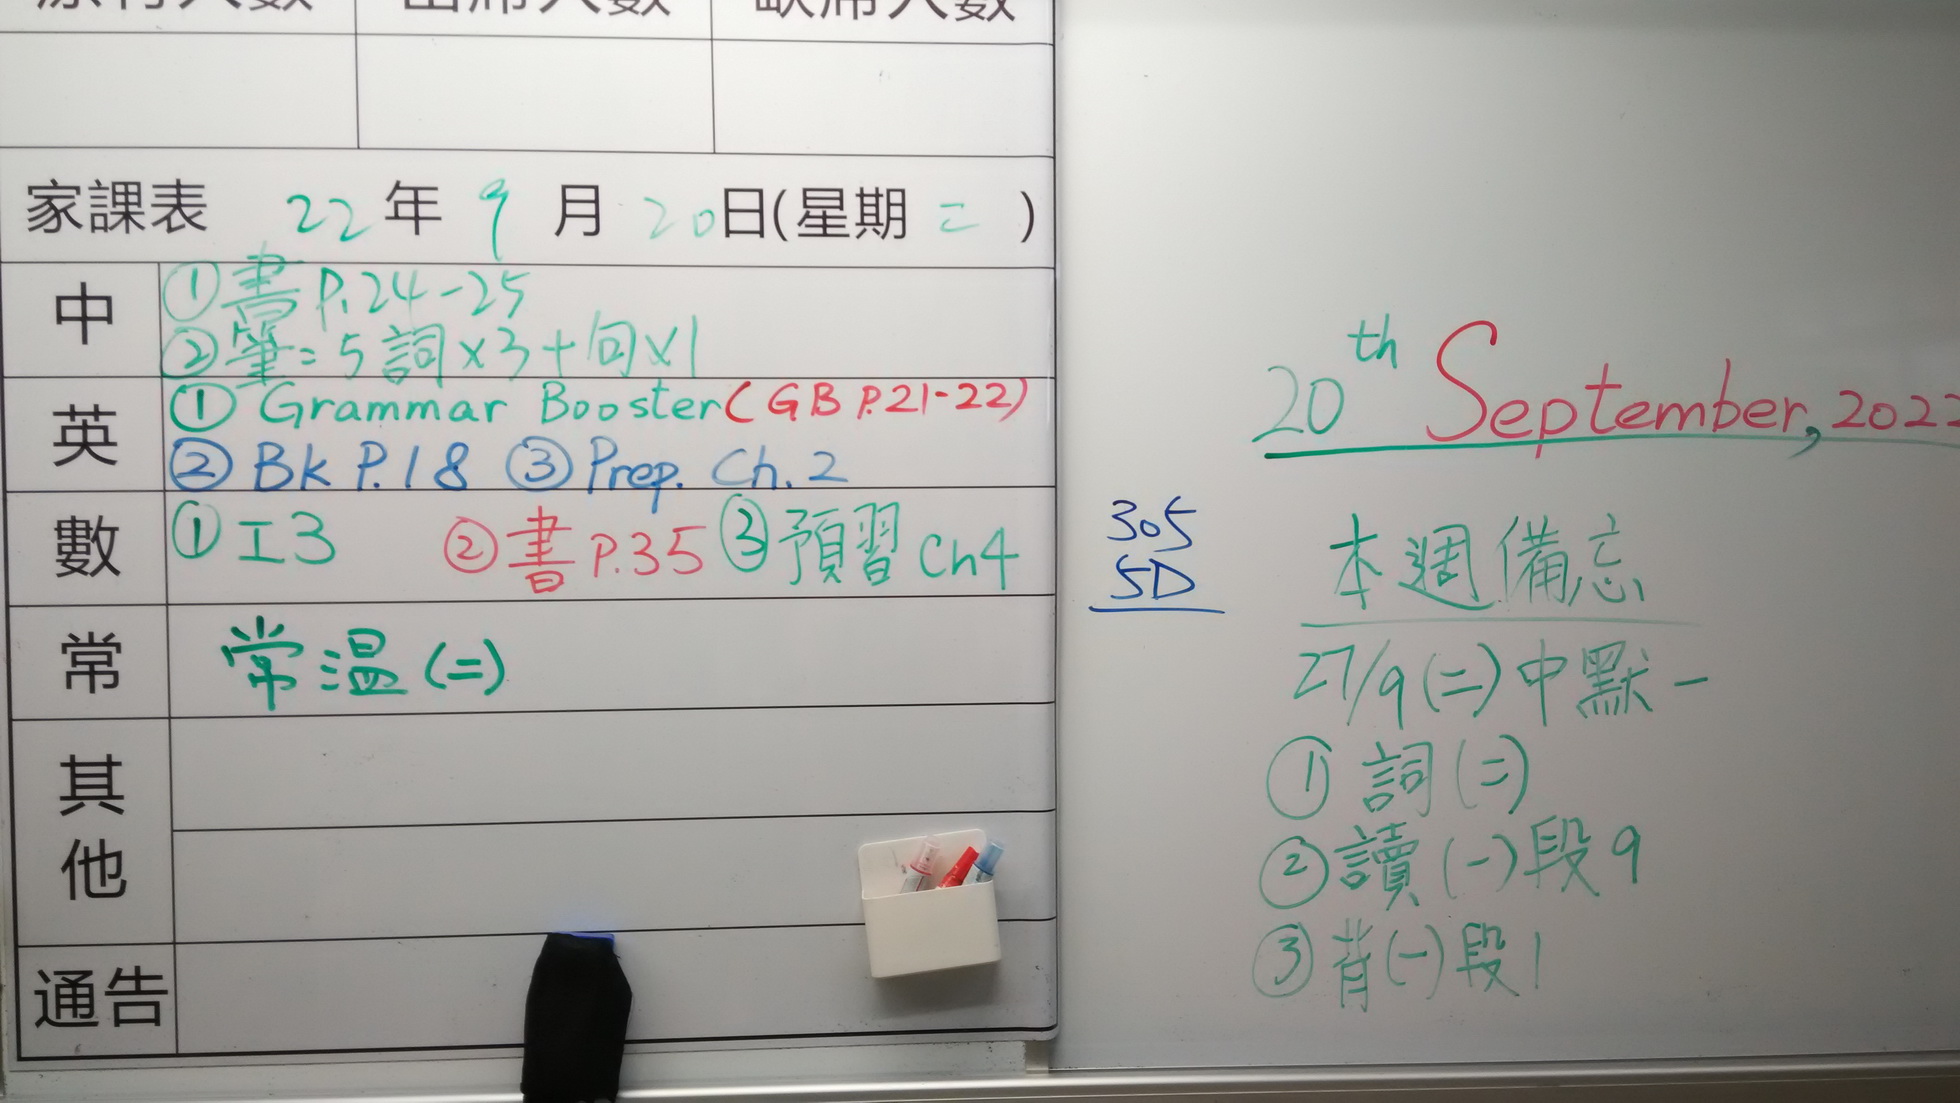 原有人數 出席人數 缺席人數
家課表 22年9月20日(星期二)
中 ①書P.24-25
②筆=5詞×3+句×1
英 ①Grammar Booster(GB P.21-22)
②Bk P.18 ③Prep. Ch.2
數 ①工3 ②書P.35 ③預習Ch4
常 常温(二)
其他
通告
20th September, 2022
305
5D
本週備忘
27/9(二)中默一
①詞(二)
②讀(一)段9
③背(一)段1